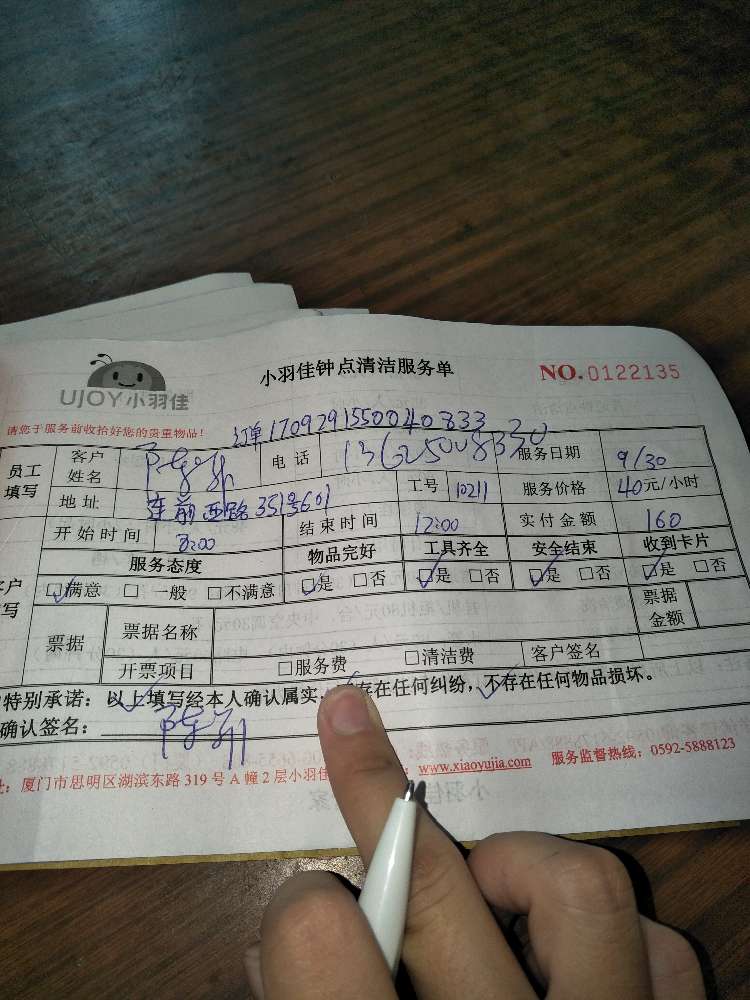 小羽佳钟点清洁服务单 NO.0122135
UJOY小羽佳
请您于服务前收拾好您的贵重物品! 订单170929155004 0833
员工填写 客户姓名 电话 13625008330 服务日期 9/30
地址 莲前西路351号601 工号 10211 服务价格 40元/小时
开始时间 8:00 结束时间 12:00 实付金额 160
服务态度 物品完好 工具齐全 安全结束 收到卡片
☑满意 □ 一般 □不满意 ☑是 □否 ☑是 □否 ☑是 □否 ☑是 □否
票据 票据名称 票据金额
开票项目 □服务费 □清洁费 客户签名
特别承诺: 以上填写经本人确认属实, 存在任何纠纷, 不存在任何物品损坏。
确认签名:
厦门市思明区湖滨东路319号A幢2层小羽佳 www.xiaoyujia.com 服务监督热线: 0592-5888123